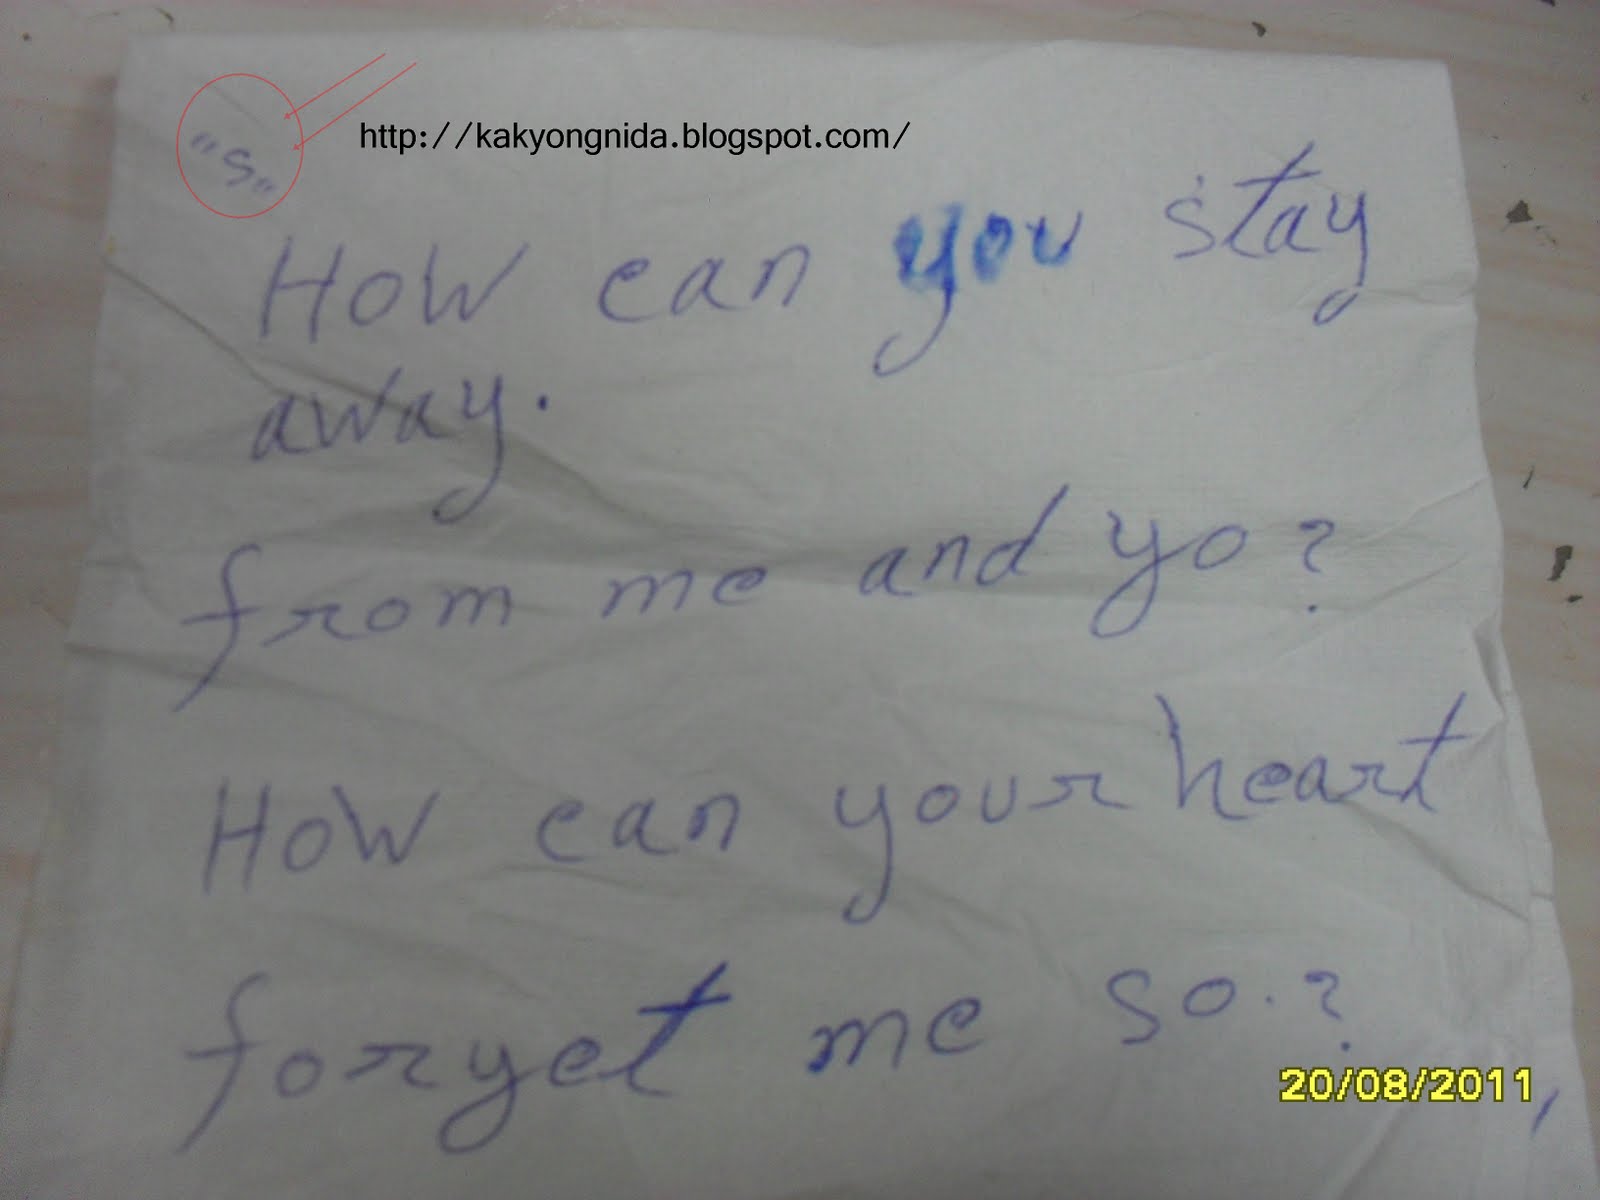 "s"
http://kakyongnida.blogspot.com/
How can you stay
away.
from me and yo?
How can your heart
foryet me so.?
20/08/2011